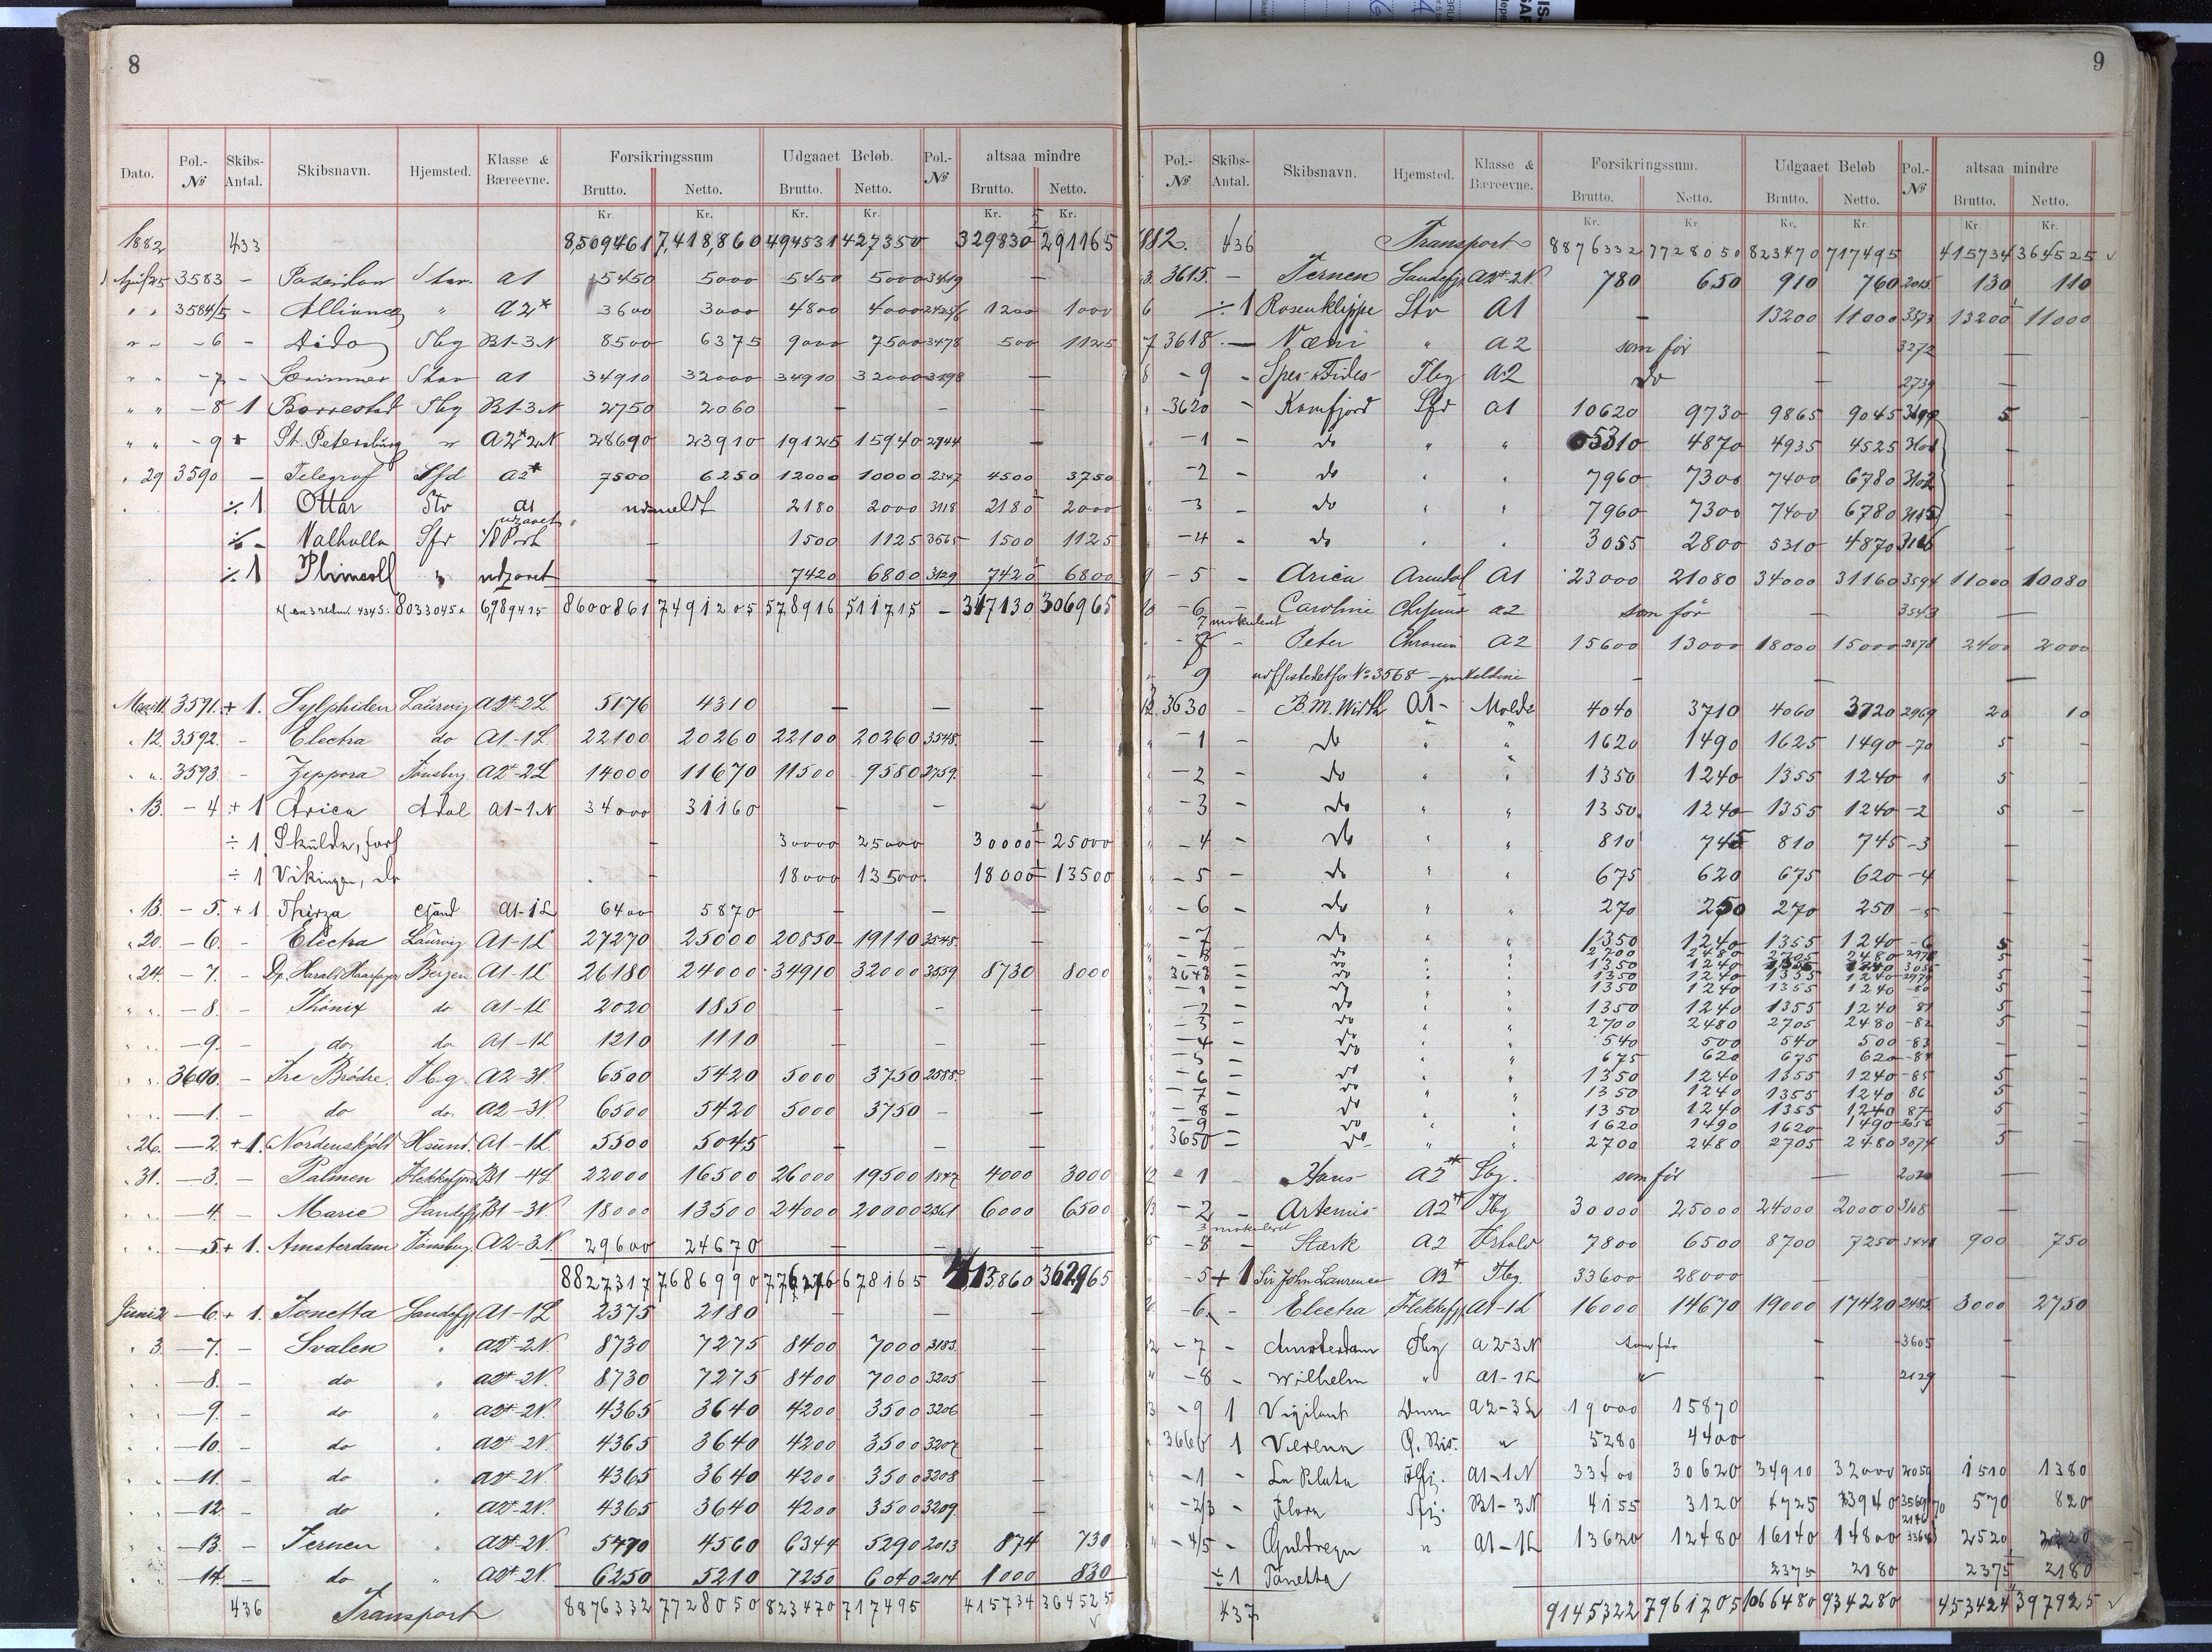 8
Dato. Pol.-№ Skibs-Antal. Skibsnavn. Hjemsted. Klasse & Bæreevne. Forsikringssum Brutto. Netto. Udgaaet Beløb. Brutto. Netto. Pol.-№ altsaa mindre Brutto. Netto.
Kr. Kr. Kr. Kr. Kr. Kr.
1882 433 8,509461 7,418,860 494531 427350 329830 291165
April 25 3583 - Poseidon Stav. A1 5450 5000 5450 5000 3419 -
" " 3584/5 - Alliance " A2* 3600 3000 4800 4000 1200 1000
" " -6 - Aido Tbg B1-3N 8500 6375 9000 7500 3478 500 1125
" " -7 - Særimner Stav A1 34910 32000 34910 32000 3198 -
" " -8 1 Borrestad Tbg B1-3N 2750 2060 - - -
" " -9 + St. Petersburg " A2* 2N 28690 23910 19125 15940 2944 -
" 29 3590 - Telegraf Sfd A2* 7500 6250 12000 10000 2347 4500 3750
÷ 1 Ottar Stv A1 udmeldt 2180 2000 3118 2180 2000
÷ - Valhalla Sfr - 1500 1125 3565 1500 1125
÷ 1 " udgaaet - 7420 6800 3129 7420 6800
8033045 6989415 8600861 7491205 578916 511715 - 347130 306965
Mai 11. 3591. + 1. Sylphiden Laurvig A2*-2L 5176 4310 - - -
" 12. 3592. - Electra do A1-1L 22100 20260 22100 20260 3548. -
" " 3593. - Zeppora Tönsberg A2*-2L 14000 11670 11500 9580 2759. -
" 13. -4 + 1 Arica Adal A1-1N 34000 31160 - - -
÷ 1 Skulda, forl - 30000 25000 30000 25000
÷ 1 Vikingen, do - 18000 13500 18000 13500
" 13. -5. + 1 Thirza Csand A1-1L 6400 5870 - - -
" 20. -6. - Electra Laurvig A1-1L 27270 25000 20850 19110 3548. -
" 24. -7. - Dp. Harald Haarfager Bergen A1-1L 26180 24000 34910 32000 3559 8730 8000
" " -8. - Phönix do A1-1L 2020 1850 - - -
" " -9. - do do A1-1L 1210 1110 - - -
" " 3600. - Tre Brödre. Tbg. A2-3N. 6500 5420 5000 3750 2588. -
" " -1. - do do A2-3N. 6500 5420 5000 3750 - -
" 26. -2. + 1. Nordenskjöld Hsund. A1-1L 5500 5045 - - -
" 31. -3. - Palmen Flekkefjord B1-4L 22000 16500 26000 19500 1847 4000 3000
" " -4. - Marie Sandefj. B1-3N. 18000 13500 24000 20000 2361 6000 6500
" " -5 + 1. Amsterdam Tönsberg. A2-3N. 29600 24670 - - -
8827317 7686990 776276 678165 413860 362965
Juni 2. -6. + 1. Jonetta Sandefj. A1-1L 2375 2180 - - -
" 3. -7. - Svalen " A2*-2N. 8730 7275 8400 7000 3183. -
" " -8. - do " A2*-2N. 8730 7275 8400 7000 3205 -
" " -9. - do " A2*-2N. 4365 3640 4200 3500 3206 -
" " -10. - do " A2*-2N. 4365 3640 4200 3500 3207 -
" " -11. - do " A2*-2N. 4365 3640 4200 3500 3208 -
" " -12. - do " A2*-2N. 4365 3640 4200 3500 3209. -
" " -13. - Ternen " A2*-2N. 5470 4560 6344 5290 2013 874 730
" " -14. - do " A2*-2N. 6250 5210 7250 6040 2014 1000 830
436 Transport 8876332 7728050 823470 717495 415734 364525
9
Pol.-№ Skibs-Antal. Skibsnavn. Hjemsted. Klasse & Bæreevne. Forsikringssum. Brutto. Netto. Udgaaet Beløb Brutto. Netto. Pol.-№ altsaa mindre Brutto. Netto.
Kr. Kr. Kr. Kr. Kr. Kr.
882. 436 Transport 8876332 7728050 823470 717495 415734 364525
3. 3615. - Ternen Sandefj. A2*-2N. 780 650 910 760 2015 130 110
6 ÷ 1 Rosenklippe Stv A1 - 13200 11000 3573 13200 11000
7 3618. - Væni " A2 som før - 3272 -
8 -9 - Spes & Fides Tbg A2 do - 2739 -
" -3620 - Komfjord Sfd A1 10620 9730 9865 9045 3099 5 -
" -1 - do " " 5310 4870 4935 4525 3101 -
-2 - do " " 7960 7300 7400 6780 3102 -
-3 - do " " 7960 7300 7400 6780 3115 -
-4 - do " " 3055 2800 5310 4870 3116 -
9 -5 - Arica Arendal A1 23000 21080 34000 31160 3594 11000 10080
10 -6 - Caroline A2 som før - 3543 -
7 makuleret
-8 - Peter A2 15600 13000 18000 15000 2870 2400 2000
9 udstedet for No 3568 - - -
12 3630 - B. M. Width A1 - Molde 4040 3710 4060 3720 2969 20 10
" -1 - do " " 1620 1490 1625 1490 -70 5 -
-2 - do " " 1350 1240 1355 1240 1 5
-3 - do " " 1350 1240 1355 1240 -2 5 -
-4 - do " " 810 745 810 745 -3 -
-5 - do " " 675 620 675 620 -4 -
-6 - do " " 270 250 270 250 -5 -
-7 - do " " 1350 1240 1355 1240 -6 5 -
-8 - do " " 2700 2480 2705 2480 2978 5 -
do " " 1350 1240 1355 1240 3055 5
3640 - do " " 1350 1240 1355 1240 2979 5 -
-1 - do " " 1350 1240 1355 1240 -80 5 -
-2 - do " " 1350 1240 1355 1240 81 5 -
-3 - do " " 2700 2480 2705 2480 -82 5 -
-4 - do " " 540 500 540 500 -83 -
-5 - do " " 675 620 675 620 -84 -
-6 - do " " 1350 1240 1355 1240 -85 5 -
-7 - do " " 1350 1240 1355 1240 86 5 -
-8 - do " " 1350 1240 1355 1240 87 5 -
-9 - do " " 1620 1490 1620 1490 3056 -
3650 - do " " 2700 2480 2705 2480 3074 5 -
12 -1 - Hans A2* Sbg. som før - 2020 -
13 -2 - Artemis A2* Tbg 30000 25000 24000 20000 3168 -
3 makuleret
15 -4 - Stærk A2 7800 6500 8700 7250 900 750
-5 + 1 Sir John Laurence A2* Tbg. 33600 28000 - -
-6. - Electra Flekkefj. A1-1L 16000 14670 19000 17420 2485 3000 2750
12 -7 - Amsterdam Tbg A2-3N som før - 3605 -
-8 - Wilhelm " A1-1L " - 2129 -
13 -9 1 Vigilant A2-3L 19000 15870
3660 1 Verena Ø. Ris. " 5280 4400
-1 - La Plata A1-1N 33400 30620 34910 32000 2059 1510 1380
-2/3 - Flora Sfj. B1-3N 4155 3120 4725 3940 3569/70 570 820
-4/5 - Guldregn " A1-1L 13620 12480 16140 14800 2520 2320
÷ 1 Jonetta 2375 2180 2375 2180
437 9145322 7961705 1066480 934280 453424 397925